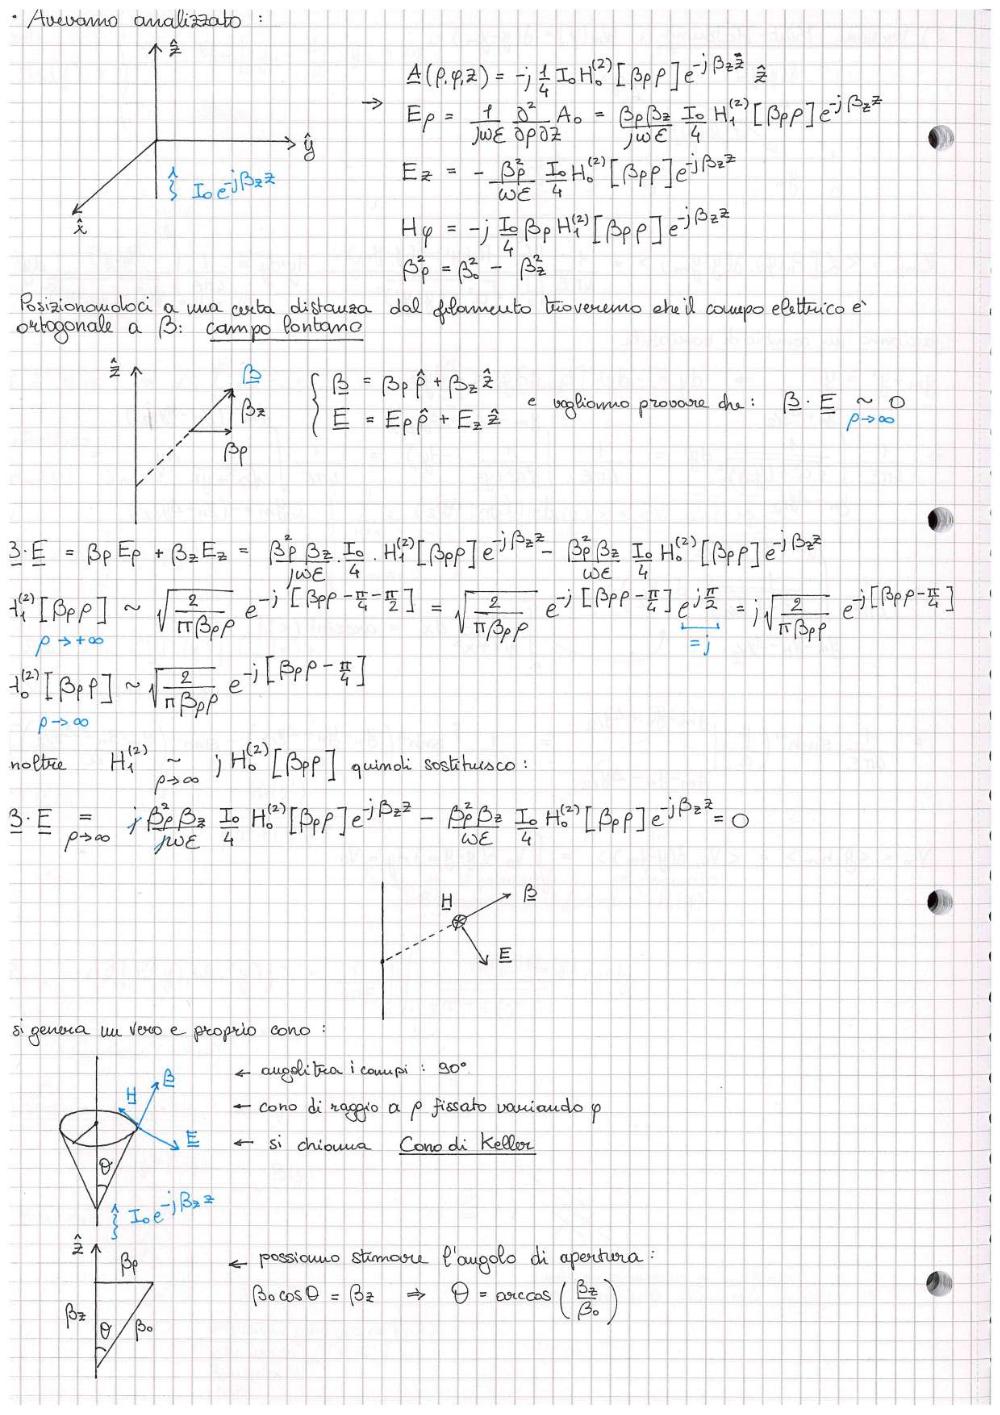 • Avevamo analizzato :
ẑ
ŷ
x̂
I₀ e^{-jβ_z z}
→ A(ρ,φ,z) = -j 1/4 I₀ H₀^{(2)} [β_ρ ρ] e^{-jβ_z z} ẑ
E_ρ = 1/(jωε) ∂²/(∂ρ∂z) A₀ = (β_ρ β_z)/(jωε) I₀/4 H₁^{(2)} [β_ρ ρ] e^{-jβ_z z}
E_z = - β_ρ²/(ωε) I₀/4 H₀^{(2)} [β_ρ ρ] e^{-jβ_z z}
H_φ = -j I₀/4 β_ρ H₁^{(2)} [β_ρ ρ] e^{-jβ_z z}
β_ρ² = β₀² - β_z²
Posizionandoci a una certa distanza dal filamento troveremo che il campo elettrico è
ortogonale a β: campo lontano
ẑ
β
β_z
β_ρ
{ β = β_ρ ρ̂ + β_z ẑ
E = E_ρ ρ̂ + E_z ẑ
e vogliamo provare che : β · E ~ 0
ρ→∞
β·E = β_ρ E_ρ + β_z E_z = (β_ρ² β_z)/(jωε) · I₀/4 · H₁^{(2)} [β_ρ ρ] e^{-jβ_z z} - (β_ρ² β_z)/(ωε) I₀/4 H₀^{(2)} [β_ρ ρ] e^{-jβ_z z}
H₁^{(2)} [β_ρ ρ] ~ √(2/(πβ_ρ ρ)) e^{-j[β_ρ ρ - π/4 - π/2]} = √(2/(πβ_ρ ρ)) e^{-j[β_ρ ρ - π/4]} e^{jπ/2} = j √(2/(πβ_ρ ρ)) e^{-j[β_ρ ρ - π/4]}
ρ→+∞
=j
H₀^{(2)} [β_ρ ρ] ~ √(2/(πβ_ρ ρ)) e^{-j[β_ρ ρ - π/4]}
ρ→∞
noltre H₁^{(2)} ~ j H₀^{(2)} [β_ρ ρ] quindi sostituisco :
ρ→∞
β·E = j (β_ρ² β_z)/(jωε) I₀/4 H₀^{(2)} [β_ρ ρ] e^{-jβ_z z} - (β_ρ² β_z)/(ωε) I₀/4 H₀^{(2)} [β_ρ ρ] e^{-jβ_z z} = 0
ρ→∞
H
β
E
si genera un vero e proprio cono :
β
H
E
θ
I₀ e^{-jβ_z z}
← angoli tra i campi : 90°
← cono di raggio a ρ fissato variando φ
← si chiama Cono di Keller
ẑ
β_ρ
β_z
θ
β₀
← possiamo stimare l'angolo di apertura :
β₀ cos θ = β_z ⇒ θ = arccos (β_z/β₀)